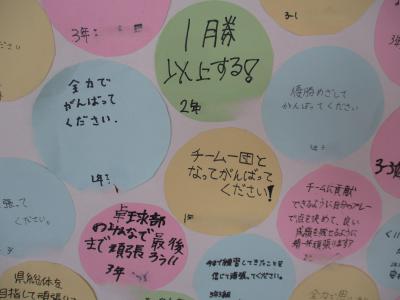 3年:
3-1
1月勝
以上する!
2年
全力で
がんばって
ください.
1年:
優勝めざして
がんばってください
チーム一団と
なってがんばって
ください!
チームに貢献
できるように自分のプレー
で点を決めて、良い
成績を残せるように
精一杯頑張ります!
3-3
卓球部
みんなで最後
まで頑張ろう!!
3年
張って
ください。
今まで練習してきたことを
信じて頑張ってください。
県総体を
目指して頑張